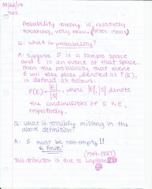 Probability theory is, relatively
speaking, very much
Q: What is probability?
A: Suppose S is a sample space
and E is an event of that space.
Then the probability that event
E will take place, denoted as P(E),
is defined as follows:
P(E) = |E| / |S|, where |E|, |S| denote
the cardinalities of S & E,
respectively.
Q: What is missing in the
above definition?
A: S must be non-empty!!
& finite!
This definition is due to Laplace